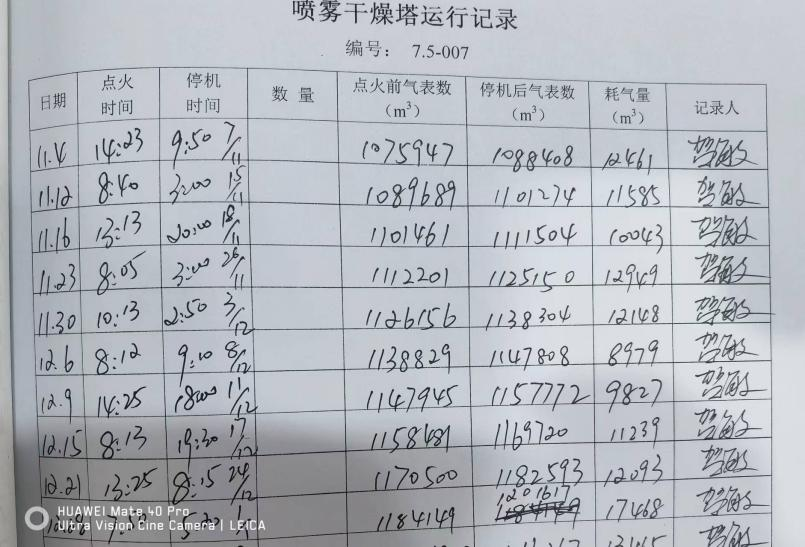 喷雾干燥塔运行记录
编号： 7.5-007
日期 点火时间 停机时间 数量 点火前气表数（m³） 停机后气表数（m³） 耗气量（m³） 记录人
11.4 14:23 9:50 7/11 1075947 1088408 12461
11.12 8:40 3:00 15/11 1089689 1101274 11585
11.16 13:13 20:00 18/11 1101461 1111504 10043
11.23 8:05 3:00 26/11 1112201 1125150 12949
11.30 10:13 2:50 3/12 1126156 1138304 12148
12.6 8:12 9:10 8/12 1138829 1147808 8979
12.9 14:25 18:00 11/12 1147945 1157772 9827
12.15 8:13 19:30 17/12 1158481 1169720 11239
12.21 13:25 8:15 24/12 1170500 1182593 12093
1184149 1201617 17468
HUAWEI Mate 40 Pro
Ultra Vision Cine Camera | LEICA